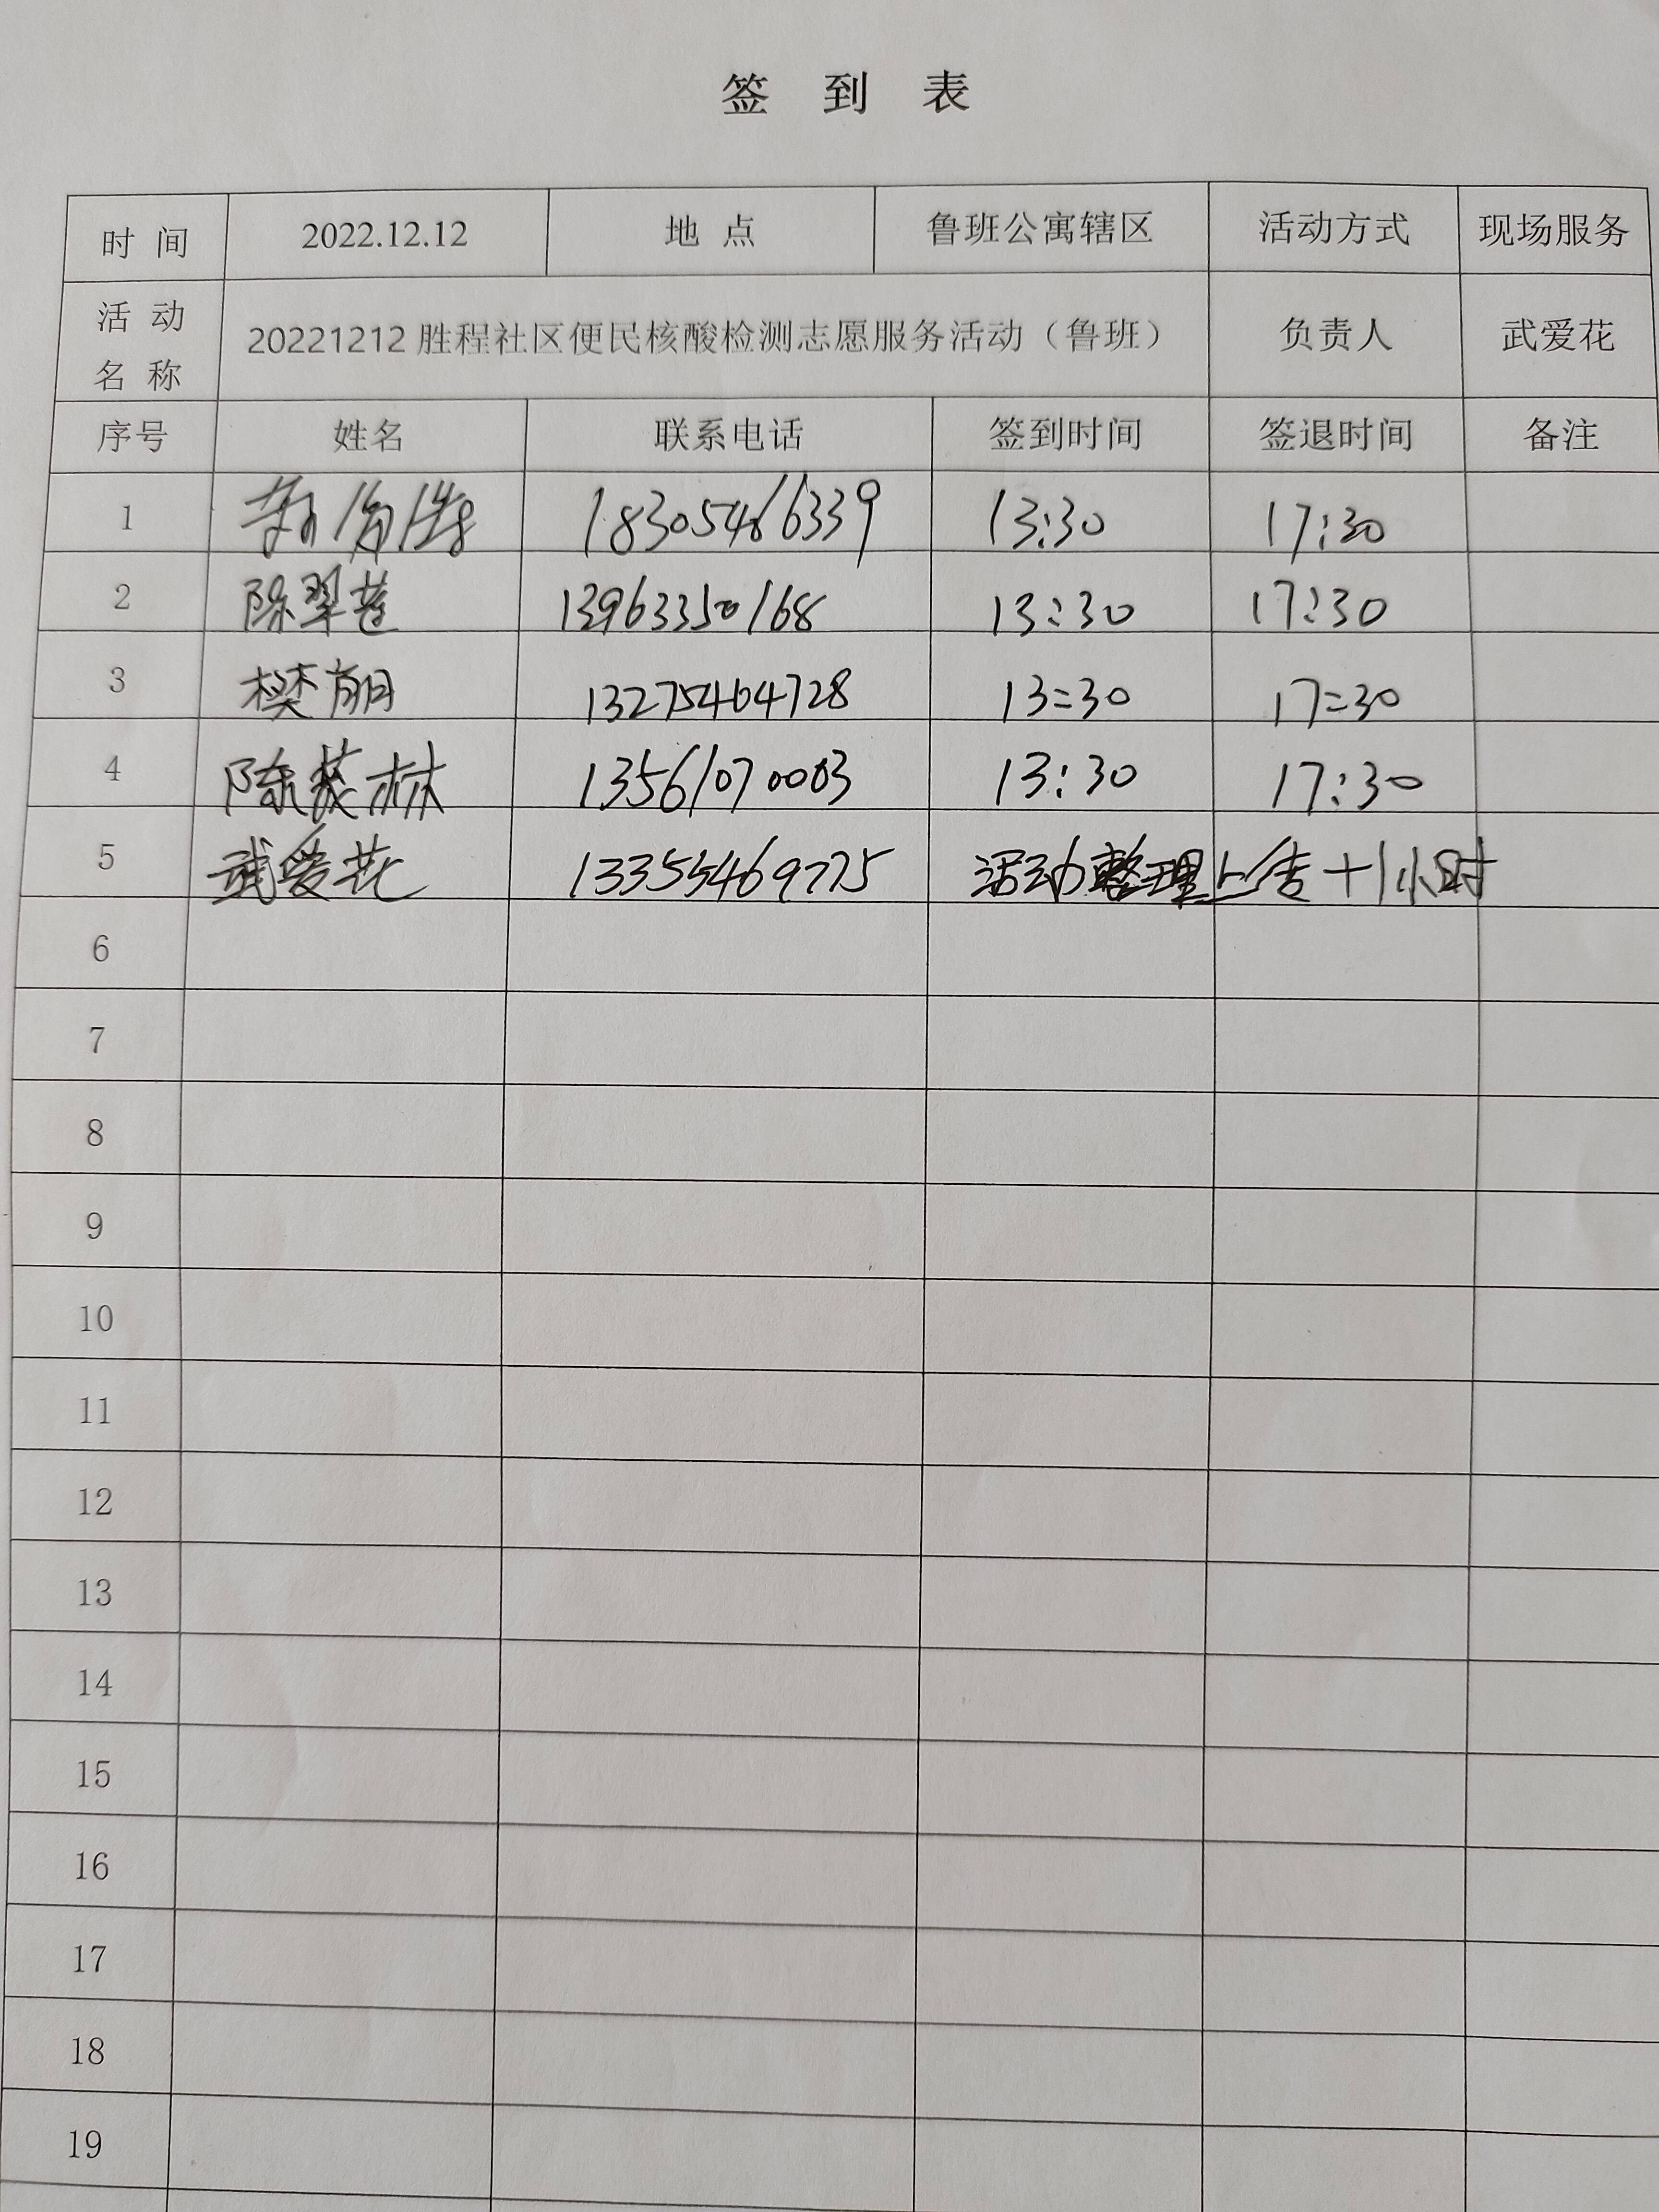 签 到 表
时 间 2022.12.12 地 点 鲁班公寓辖区 活动方式 现场服务
活 动 名 称 20221212 胜程社区便民核酸检测志愿服务活动（鲁班） 负责人 武爱花
序号 姓名 联系电话 签到时间 签退时间 备注
1 18305466339 13:30 17:30
2 陈翠莲 13963350168 13:30 17:30
3 樊 13275464728 13:30 17:30
4 陈 林 13561070003 13:30 17:30
5 武爱花 13355469775 活动整理上传+1小时
6
7
8
9
10
11
12
13
14
15
16
17
18
19